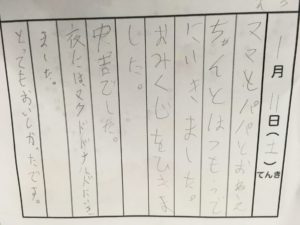 1月11日(土)
てんき
ママとパパとおねえ
ちゃんとはつもうで
にいきました。
おみくじをひきま
した。
中吉でした。
マクドナルドにいき
ました。
とってもおいしかったです。